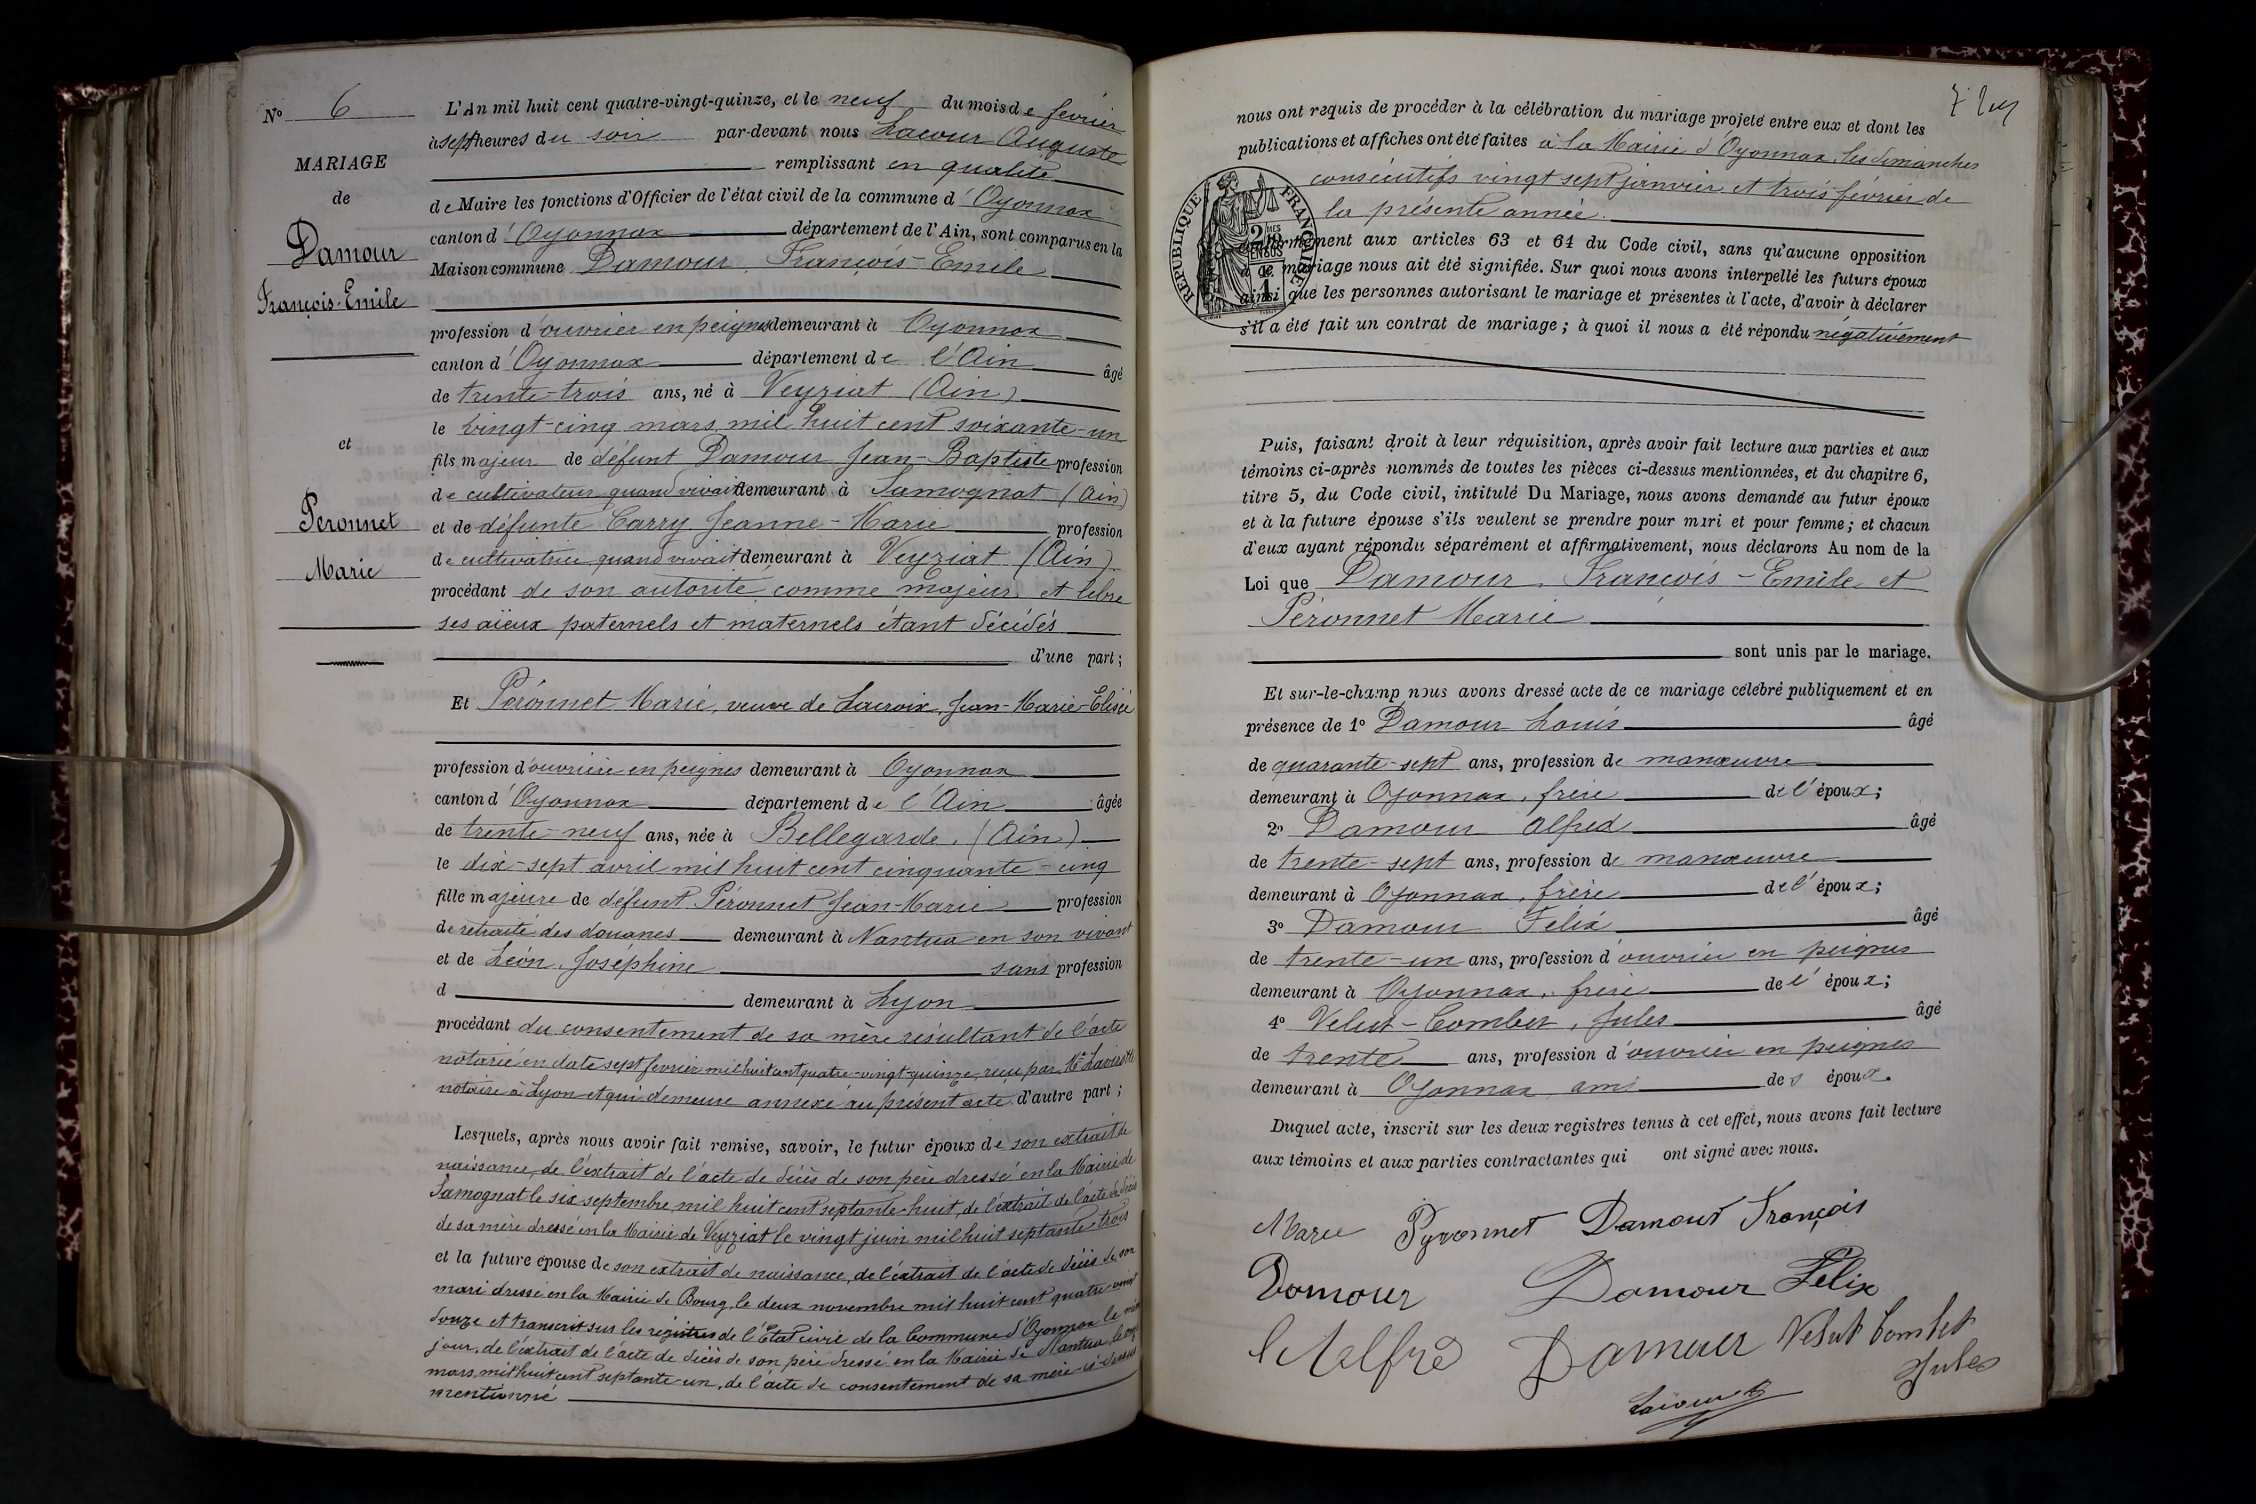 No 6
MARIAGE
de
Damour
François-Emile
et
Péronnet
Marie
L'An mil huit cent quatre-vingt-quinze, et le neuf du mois de février
à sept heures du soir par-devant nous Lacour Auguste
remplissant en qualité
de Maire les fonctions d'Officier de l'état civil de la commune d'Oyonnax
canton d'Oyonnax département de l'Ain, sont comparus en la
Maison commune Damour, François-Emile
profession d'ouvrier en peignes demeurant à Oyonnax
canton d'Oyonnax département de l'Ain âgé
de trente-trois ans, né à Veyziat (Ain)
le vingt-cinq mars mil huit cent soixante-un
fils majeur de défunt Damour Jean-Baptiste profession
de cultivateur quand vivait demeurant à Samognat (Ain)
et de défunte Carry Jeanne-Marie profession
de cultivatrice quand vivait demeurant à Veyziat (Ain)
procédant de son autorité comme majeur et libre
ses aïeux paternels et maternels étant décédés
d'une part;
Et Péronnet Marie, veuve de Lacroix, Jean-Marie-Elisée
profession d'ouvrière en peignes demeurant à Oyonnax
canton d'Oyonnax département de l'Ain âgée
de trente-neuf ans, née à Bellegarde, (Ain)
le dix-sept avril mil huit cent cinquante-cinq
fille majeure de défunt Péronnet Jean-Marie profession
de retraité des douanes demeurant à Nantua en son vivant
et de Léon, Joséphine sans profession
d demeurant à Lyon
procédant du consentement de sa mère résultant de l'acte
notarié en date sept fevrier mil huit cent quatre-vingt-quinze, reçu par Me
notaire à Lyon et qui demeure annexé au présent acte, d'autre part;
Lesquels, après nous avoir fait remise, savoir, le futur époux de son extrait de
naissance, de l'extrait de l'acte de décès de son père dressé en la Mairie de
Samognat le six septembre mil huit cent septante-huit, de l'extrait de l'acte de décès
de sa mère dressé en la Mairie de Veyziat le vingt juin mil huit septante-trois
et la future épouse de son extrait de naissance, de l'extrait de l'acte de décès de son
mari dressé en la Mairie de Bourg, le deux novembre mil huit cent quatre-vingt
douze et transcrit sur les registres de l'Etat civil de la Commune d'Oyonnax le même
jour, de l'extrait de l'acte de décès de son père dressé en la Mairie de Nantua le
mars mil huit cent septante-un, de l'acte de consentement de sa mère ci-dessus
mentionné
nous ont requis de procéder à la célébration du mariage projeté entre eux et dont les
publications et affiches ont été faites à la Mairie d'Oyonnax, les dimanches
consécutifs vingt sept janvier et trois février de
la présente année.
RÉPUBLIQUE FRANÇAISE
conformément aux articles 63 et 64 du Code civil, sans qu'aucune opposition
à ce mariage nous ait été signifiée. Sur quoi nous avons interpellé les futurs époux
ainsi que les personnes autorisant le mariage et présentes à l'acte, d'avoir à déclarer
s'il a été fait un contrat de mariage; à quoi il nous a été répondu négativement
Puis, faisant droit à leur réquisition, après avoir fait lecture aux parties et aux
témoins ci-après nommés de toutes les pièces ci-dessus mentionnées, et du chapitre 6,
titre 5, du Code civil, intitulé Du Mariage, nous avons demandé au futur époux
et à la future épouse s'ils veulent se prendre pour mari et pour femme; et chacun
d'eux ayant répondu séparément et affirmativement, nous déclarons Au nom de la
Loi que Damour, François-Emile et
Péronnet Marie
sont unis par le mariage.
Et sur-le-champ nous avons dressé acte de ce mariage célébré publiquement et en
présence de 1o Damour Louis âgé
de quarante-sept ans, profession de manœuvre
demeurant à Oyonnax, frère de l'époux;
2o Damour Alfred âgé
de trente-sept ans, profession de manœuvre
demeurant à Oyonnax, frère de l'époux;
3o Damour Félix âgé
de trente-un ans, profession d'ouvrier en peignes
demeurant à Oyonnax, frère de l'époux;
4o Velut-Combet, Jules âgé
de trente ans, profession d'ouvrier en peignes
demeurant à Oyonnax ami des époux.
Duquel acte, inscrit sur les deux registres tenus à cet effet, nous avons fait lecture
aux témoins et aux parties contractantes qui ont signé avec nous.
Marie Pyronnet Damour François
Damour Damour Félix
Damour Velut Combet
Jules